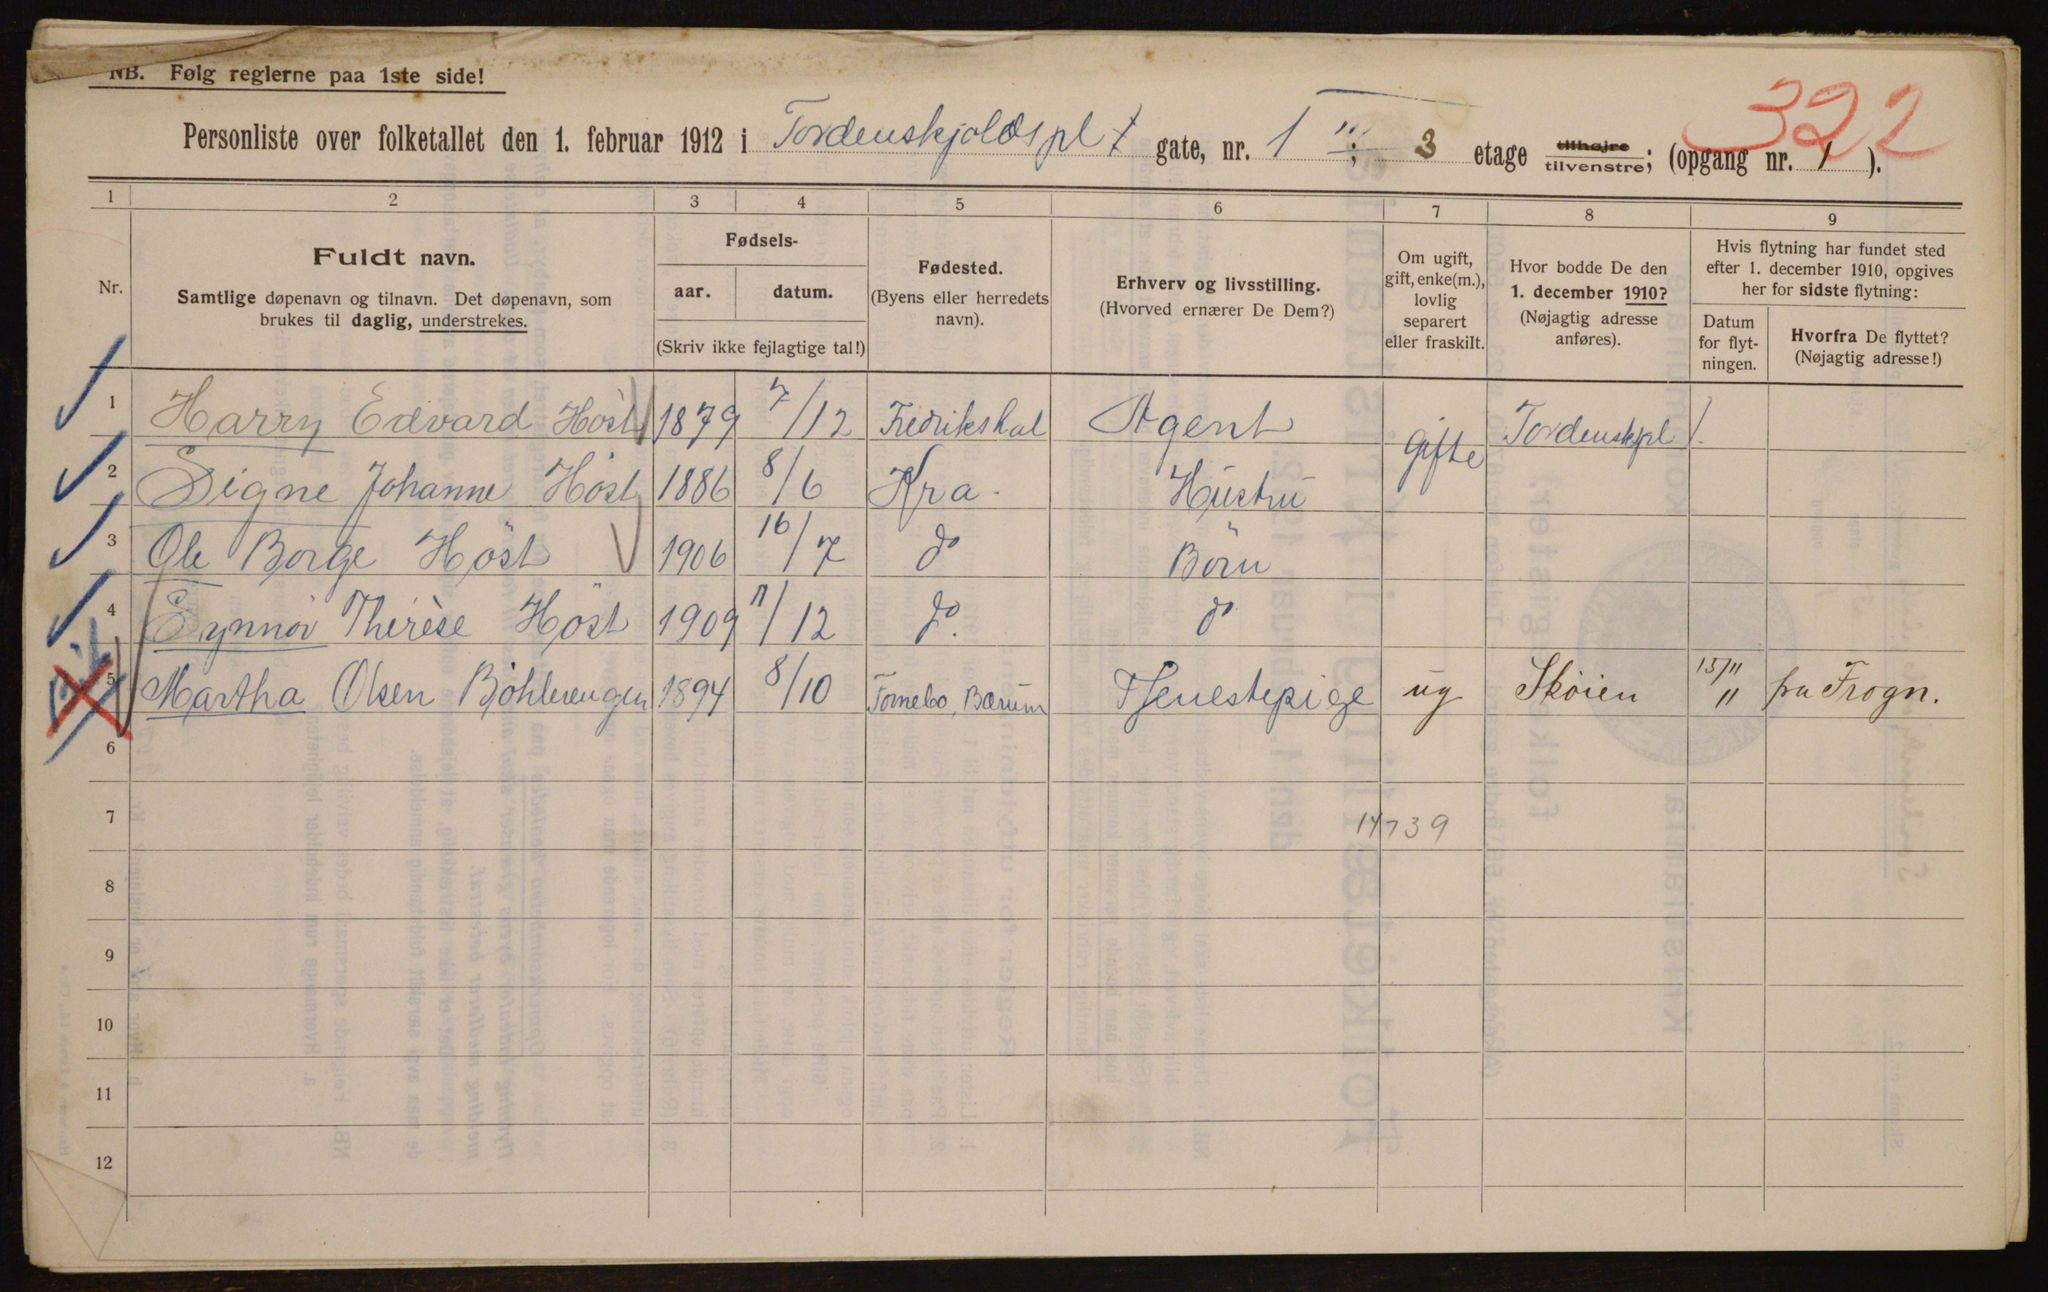 NB. Følg reglerne paa 1ste side!
322
Personliste over folketallet den 1. februar 1912 i Tordenskjoldspl gate, nr. 1 III ; 3 etage tilhøjre tilvenstre; (opgang nr. 1 ).
1 2 3 4 5 6 7 8 9
Nr.
Fuldt navn.
Samtlige døpenavn og tilnavn. Det døpenavn, som
brukes til daglig, understrekes.
Fødsels-
aar. datum.
(Skriv ikke fejlagtige tal!)
Fødested.
(Byens eller herredets
navn).
Erhverv og livsstilling.
(Hvorved ernærer De Dem?)
Om ugift,
gift, enke(m.),
lovlig
separert
eller fraskilt.
Hvor bodde De den
1. december 1910?
(Nøjagtig adresse
anføres).
Hvis flytning har fundet sted
efter 1. december 1910, opgives
her for sidste flytning:
Datum
for flyt-
ningen.
Hvorfra De flyttet?
(Nøjagtig adresse!)
1 Harry Edvard Høst 1879 7/12 Fredrikshal Agent Gifte Tordenskjpl 1.
2 Signe Johanne Høst 1886 8/6 Kra. Hustru
3 Ole Borge Høst 1906 16/7 do Börn
4 Synnöv Thérèse Høst 1909 11/12 do. do
5 Martha Olsen 1894 8/10 Fornebo, Bærum Tjenestepige ug Skøien 13/11 11 fra Frogn.
6
7 14739
8
9
10
11
12